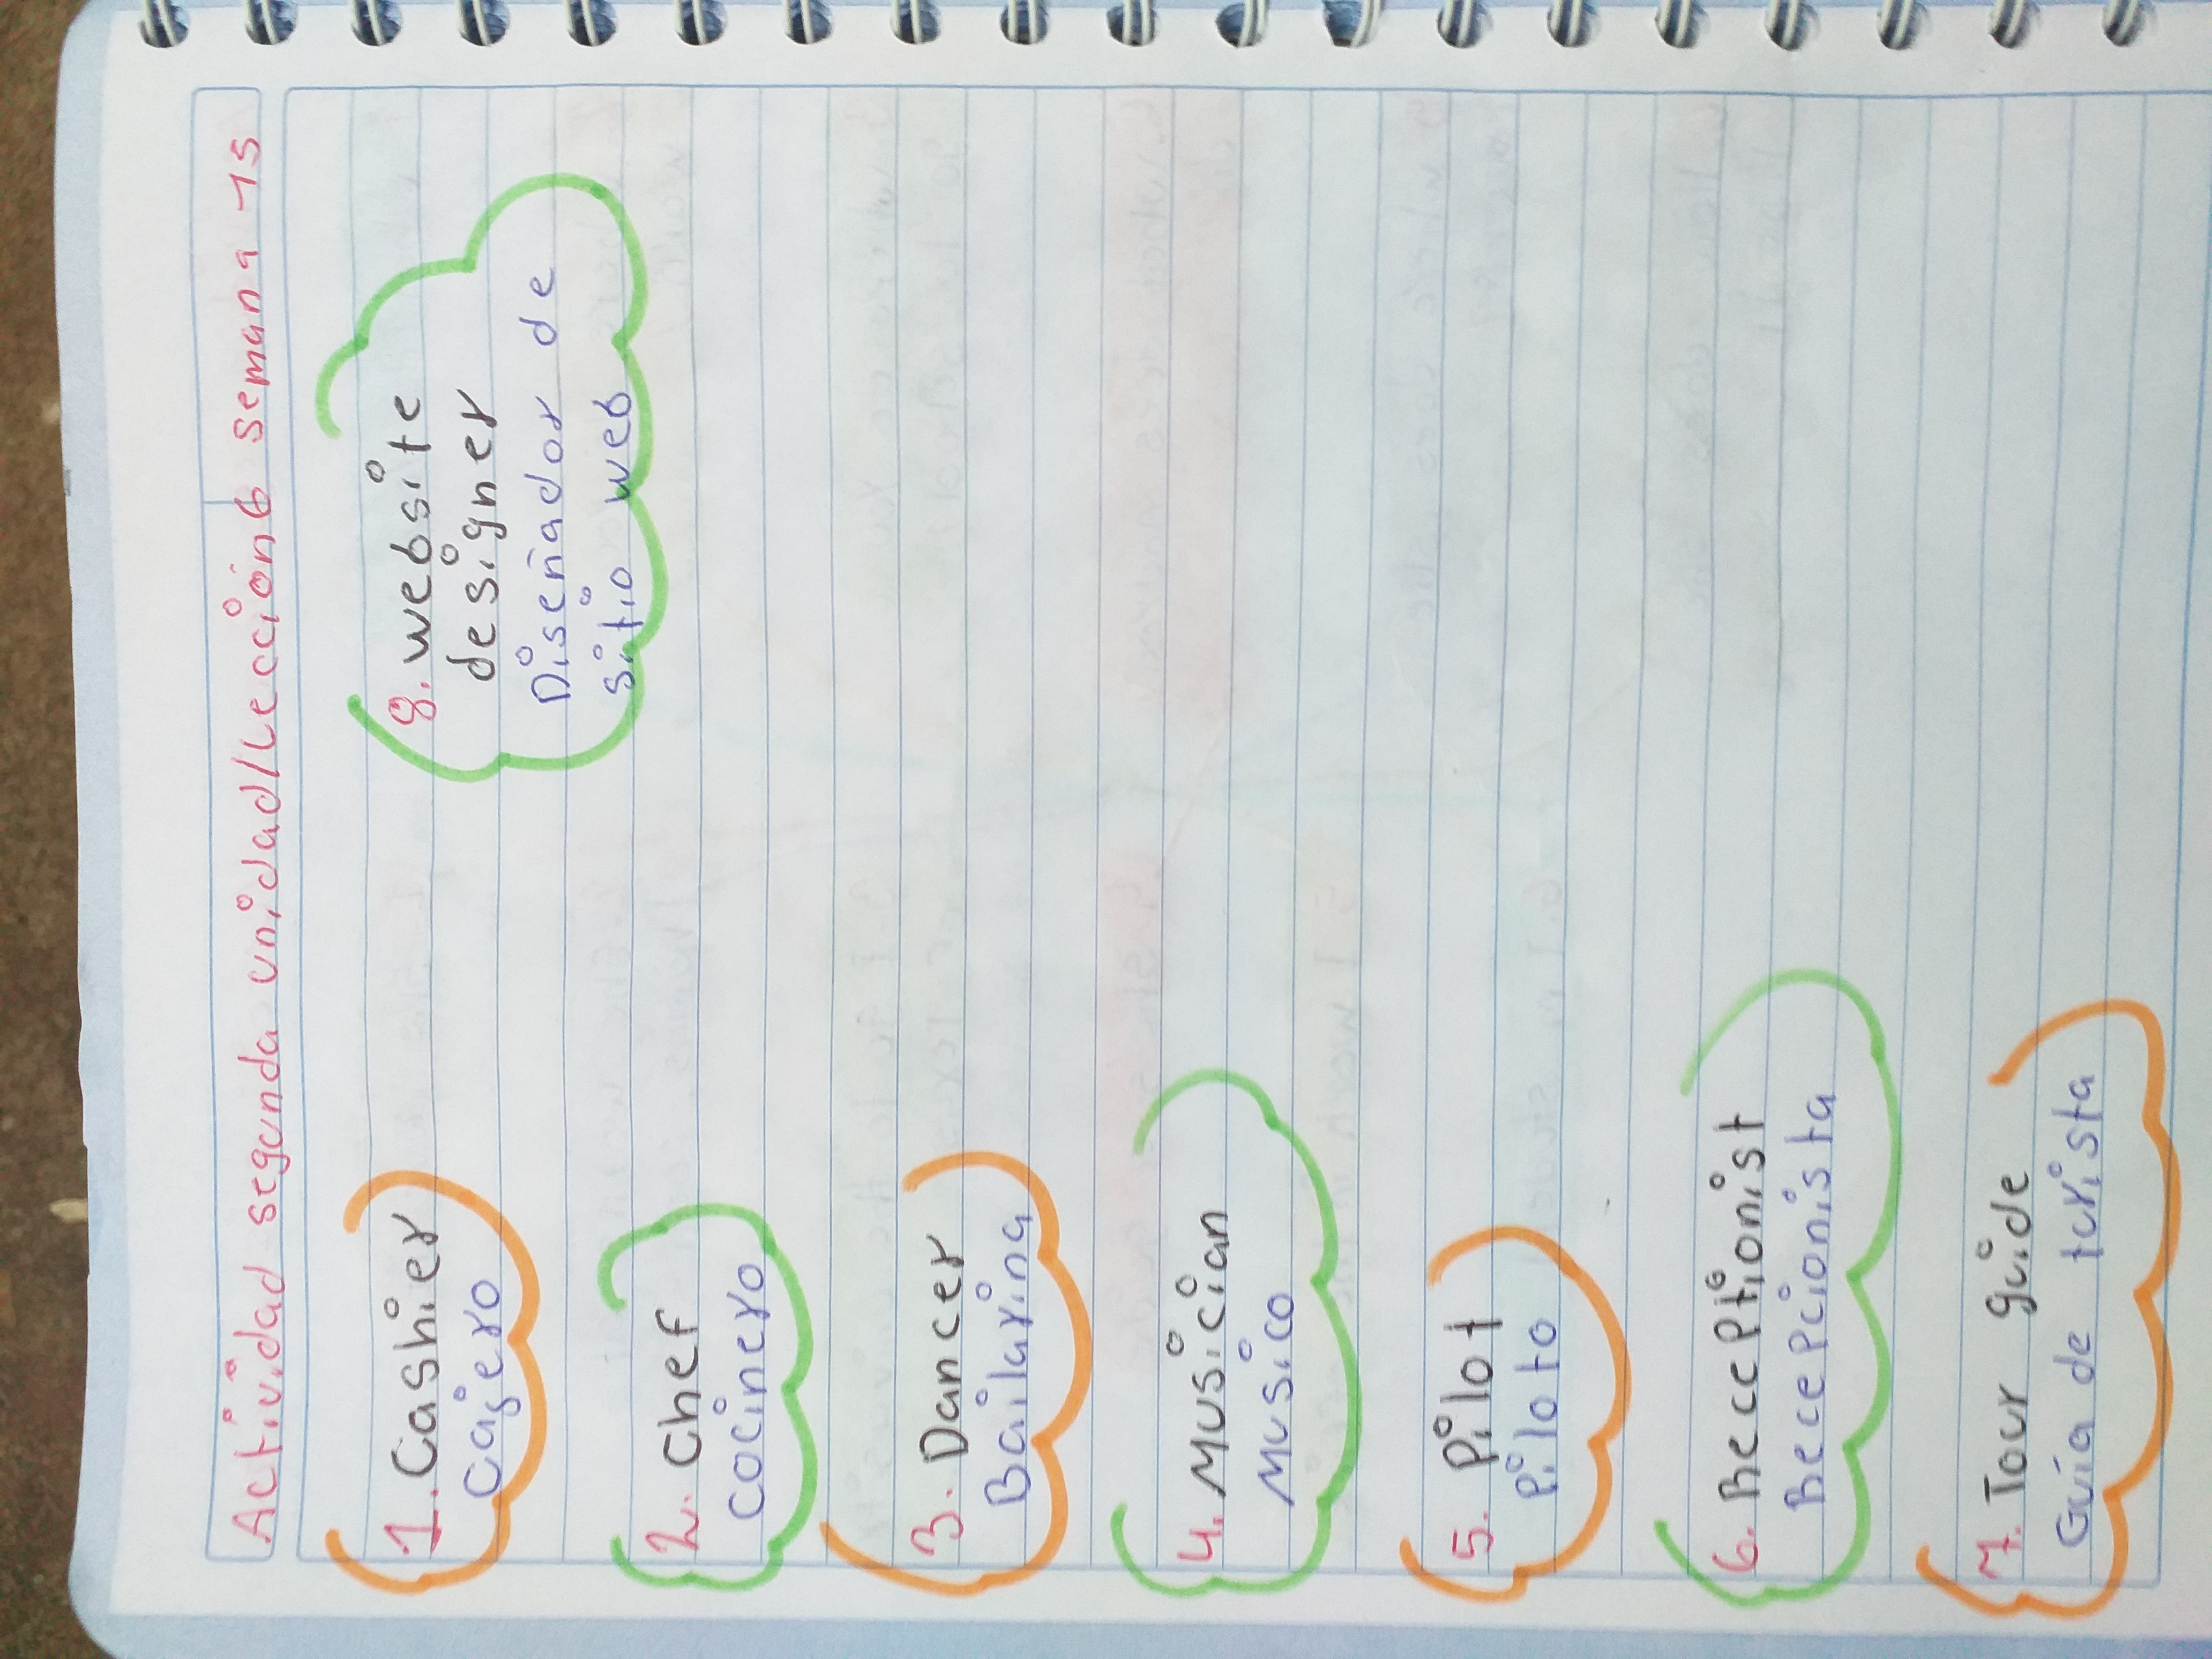 Actividad segunda unidad/Lección 6 semana -15
1. Cashier
Cajero
2. Chef
Cocinero
3. Dancer
Bailarina
4. Musician
Musico
5. Pilot
Piloto
6. Recceptionist
Recepcionista
7. Tour guide
Guía de turista
8. website
designer
Diseñador de
sitio web